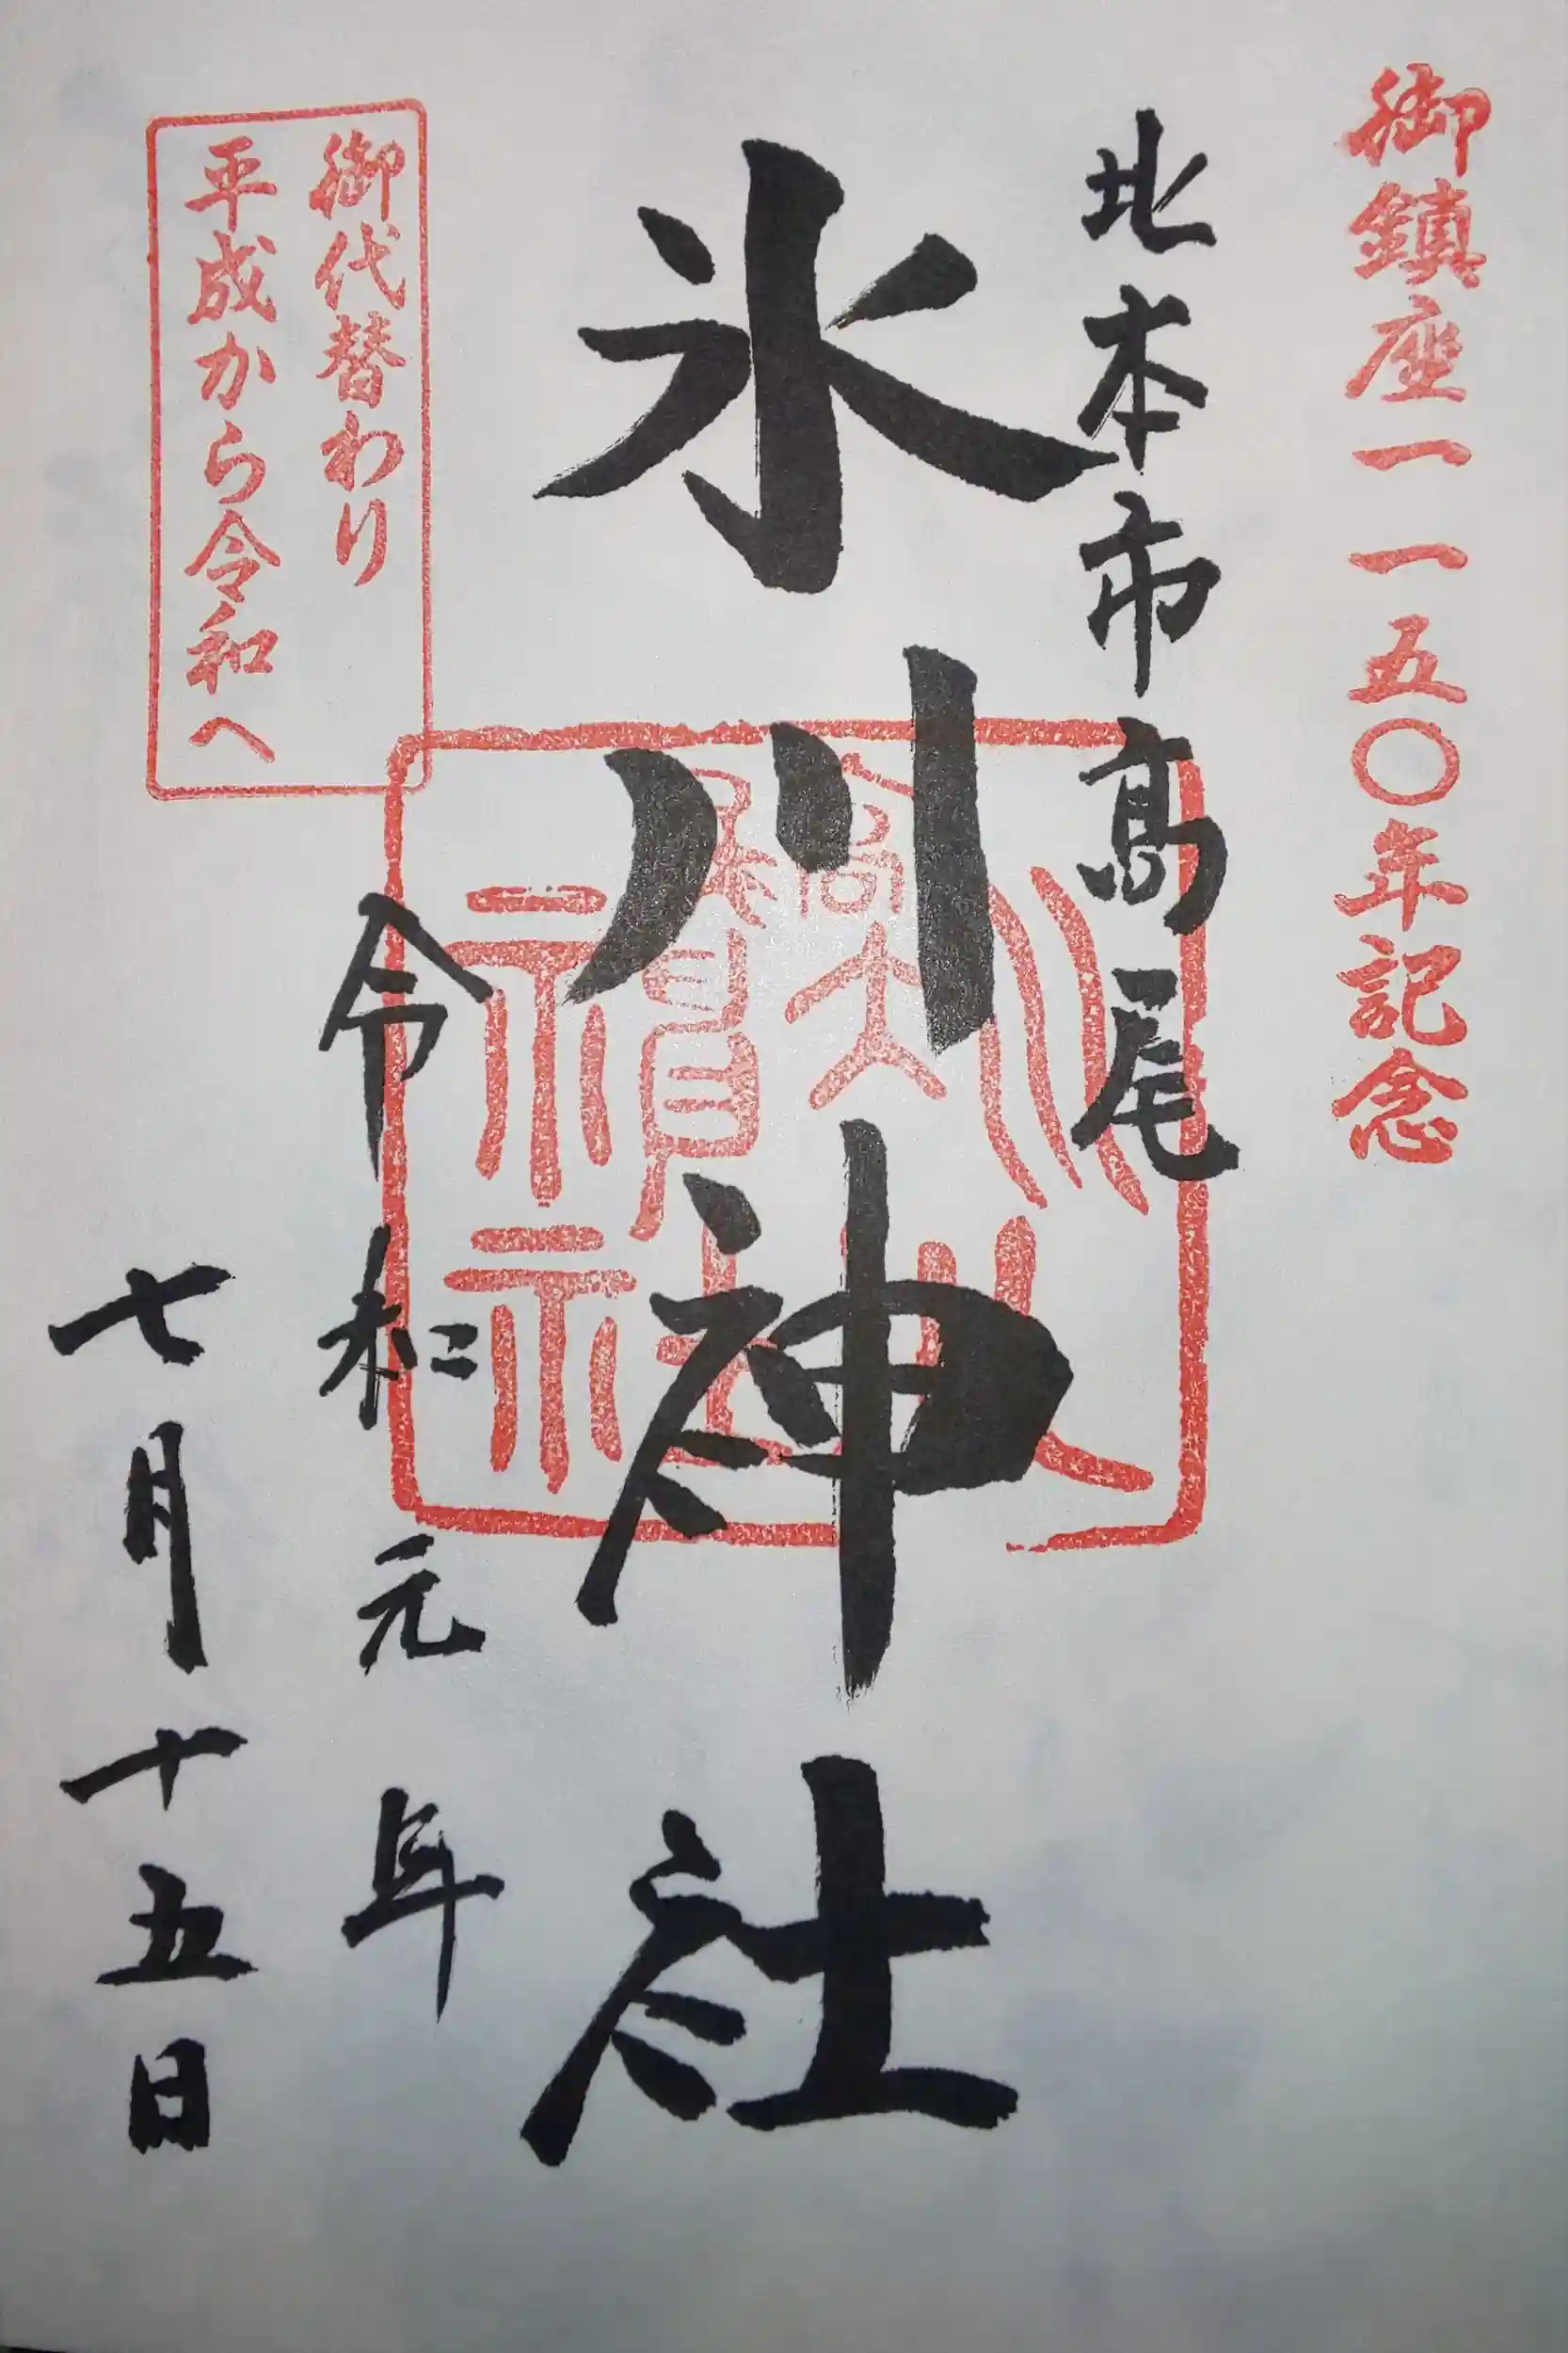 御鎮座一一五〇年記念
北本市高尾
氷川神社
令和元年
七月十五日
御代替わり
平成から令和へ